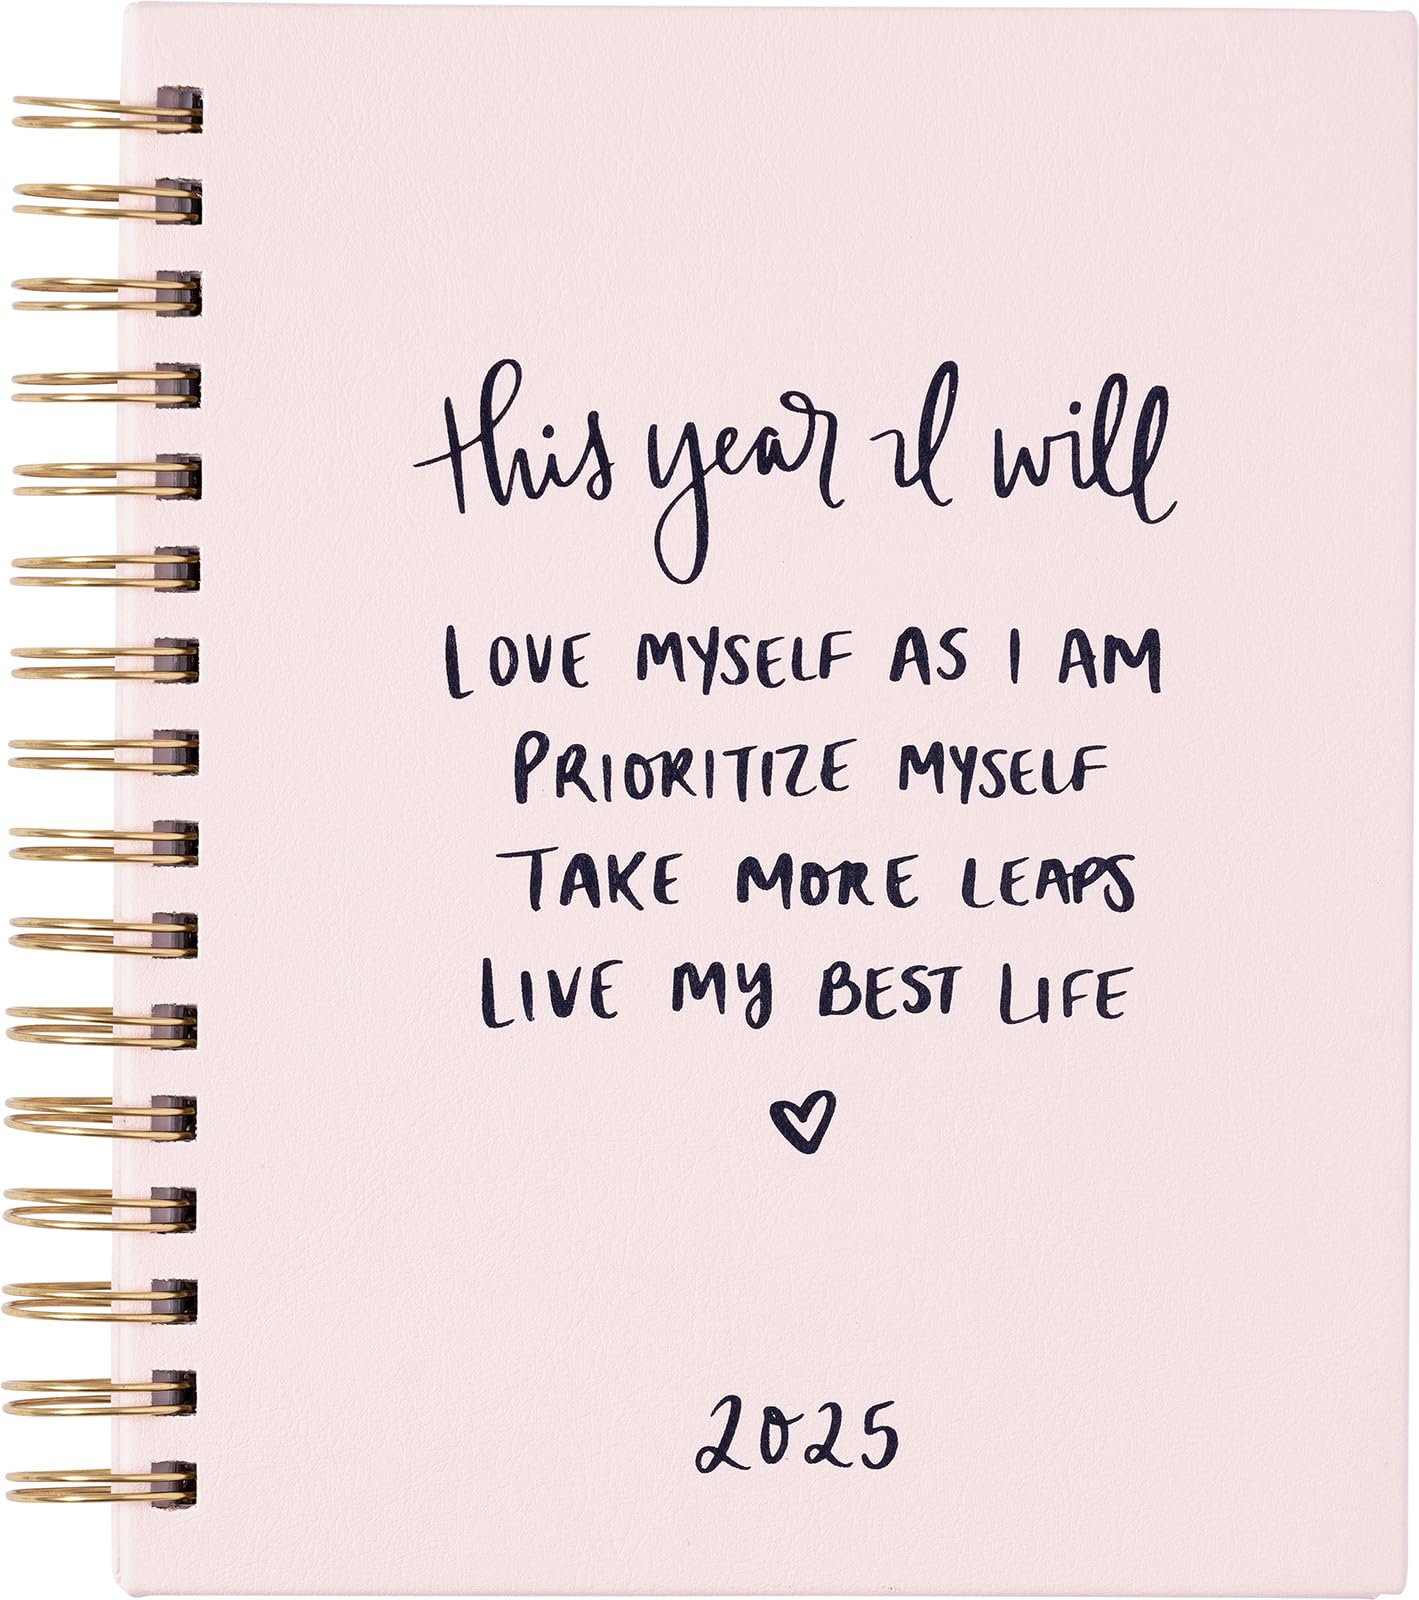 this year I will
LOVE MYSELF AS I AM
PRIORITIZE MYSELF
TAKE MORE LEAPS
LIVE MY BEST LIFE
2025